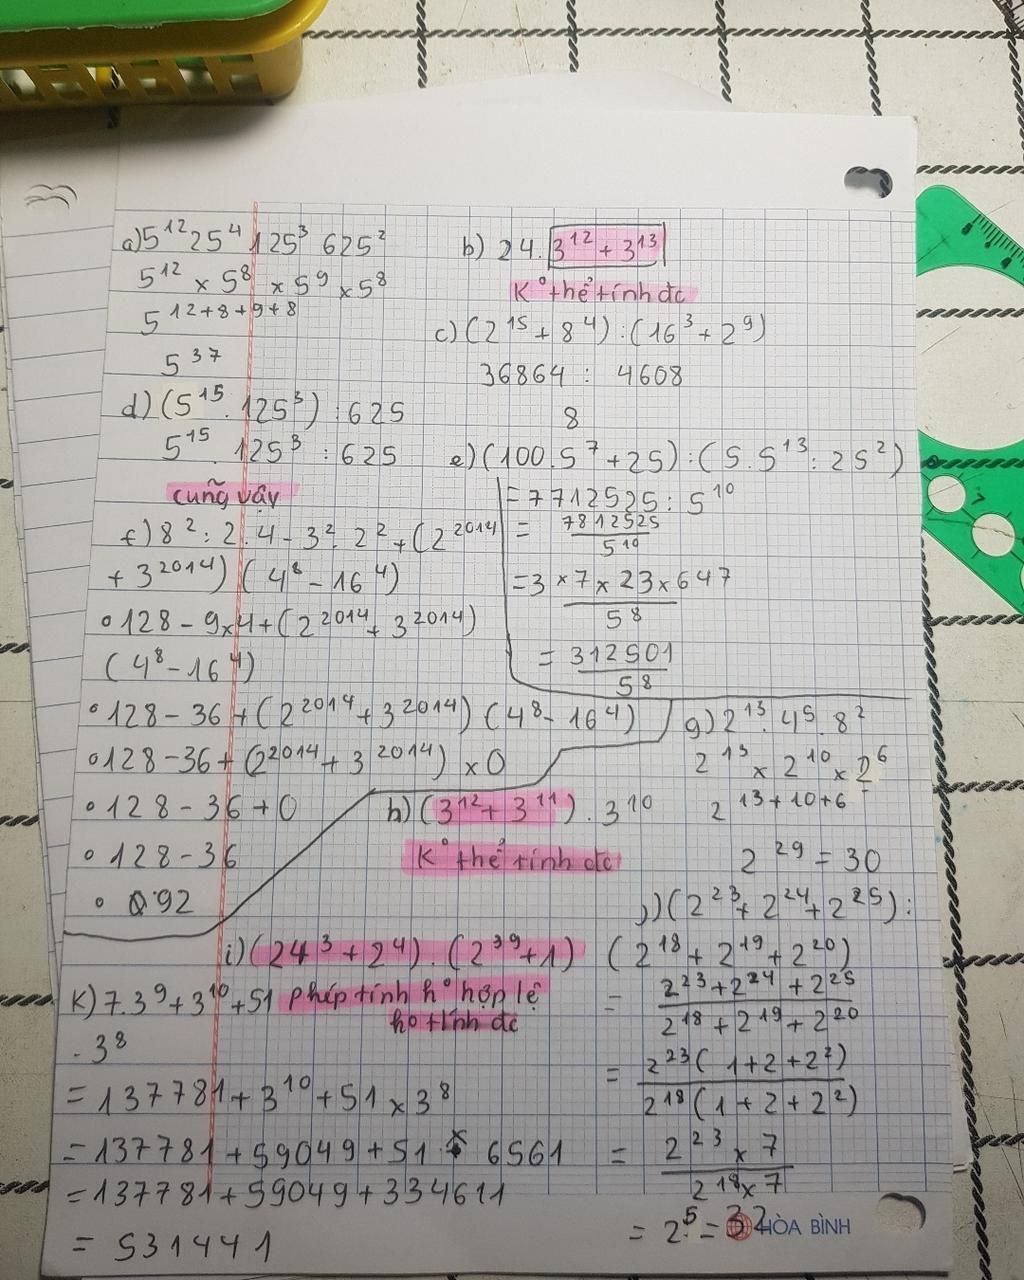 a) 5¹² 25⁴ 125³ 625²
5¹² × 5⁸ × 5⁹ × 5⁸
5¹²⁺⁸⁺⁹⁺⁸
5³⁷
b) 24. 3¹² + 3¹³
K° thể tính đc
c) (2¹⁵ + 8⁴) : (16³ + 2⁹)
36864 : 4608
8
d) (5¹⁵. 125³) : 625
5¹⁵. 125³ : 625
cũng vậy
e) (100.5⁷ + 25) : (5.5¹³ : 25²)
= 7712525 : 5¹⁰
= 7812525 / 5¹⁰
= 3 × 7 × 23 × 647 / 5⁸
= 312501 / 5⁸
f) 8² : 2.4 - 3². 2² + (2²⁰¹⁴
+ 3²⁰¹⁴) (4⁸ - 16⁴)
° 128 - 9×4 + (2²⁰¹⁴ + 3²⁰¹⁴)
(4⁸ - 16⁴)
° 128 - 36 + (2²⁰¹⁴ + 3²⁰¹⁴) (4⁸ - 16⁴)
° 128 - 36 + (2²⁰¹⁴ + 3²⁰¹⁴) × 0
° 128 - 36 + 0
° 128 - 36
° 92
g) 2¹³. 4⁵. 8²
2¹³ × 2¹⁰ × 2⁶
2¹³⁺¹⁰⁺⁶
2²⁹ = 30
h) (3¹² + 3¹¹) . 3¹⁰
K° thể tính đc
i) (24³ + 2⁴) . (2³⁹ + 1)
phép tính h° hợp lệ
ho tính đc
j) (2²³ + 2²⁴ + 2²⁵) :
(2¹⁸ + 2¹⁹ + 2²⁰)
= 2²³ + 2²⁴ + 2²⁵ / 2¹⁸ + 2¹⁹ + 2²⁰
= 2²³ (1 + 2 + 2²) / 2¹⁸ (1 + 2 + 2²)
= 2²³ × 7 / 2¹⁸ × 7
= 2⁵ = 32
K) 7.3⁹ + 3¹⁰ + 51
. 3⁸
= 137781 + 3¹⁰ + 51 × 3⁸
= 137781 + 59049 + 51 × 6561
= 137781 + 59049 + 334611
= 531441
HÒA BÌNH